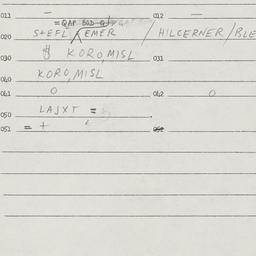 011 — 012 —
= QAP
020 STEFL / EMER / HILCERNER / BLE
030 $ KORO, MISL 031
040 KORO, MISL
041 0 042 0
050 LAJXT =
051 = +